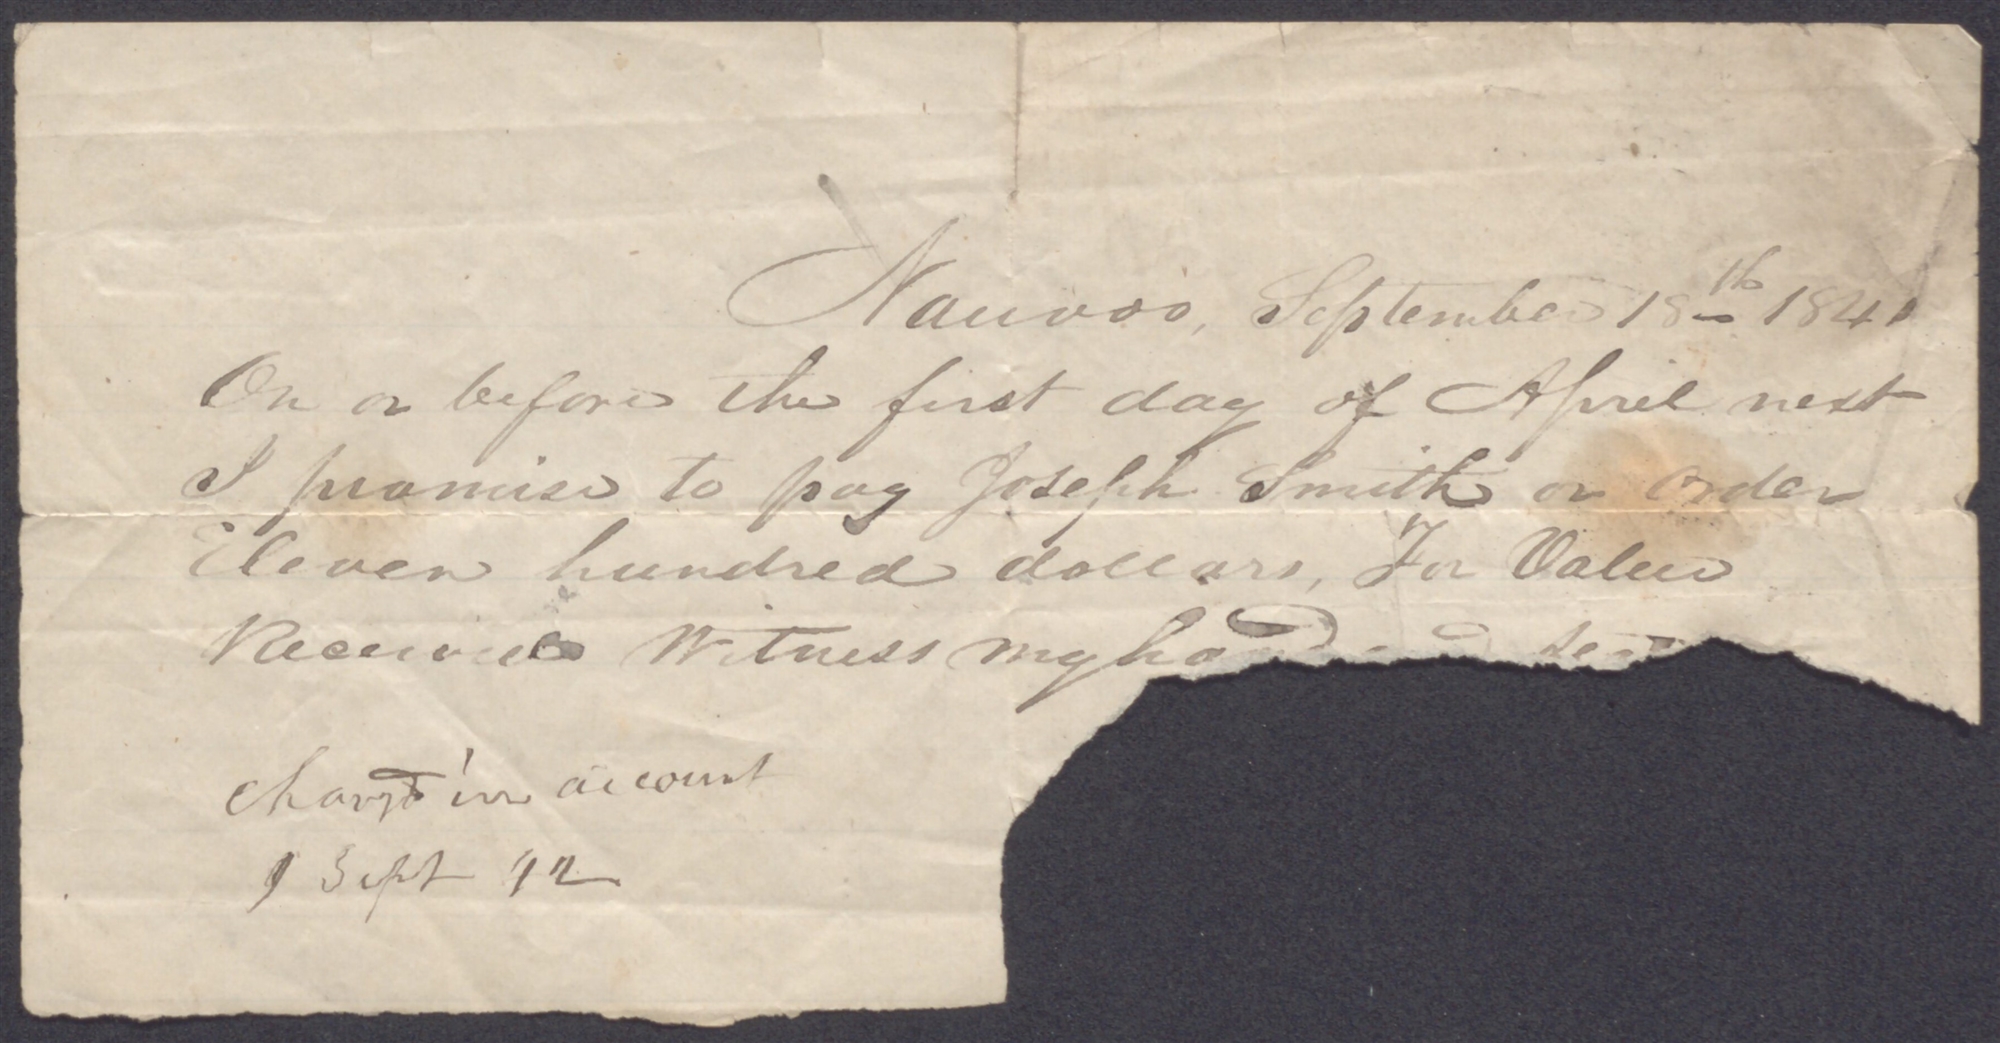 Nauvoo, September 18th 1841
On or before the first day of April next
I promise to pay Joseph Smith or order
Eleven hundred dollars, For Value
Received Witness my hand and seal
Charg'd in account
9 Sept 42